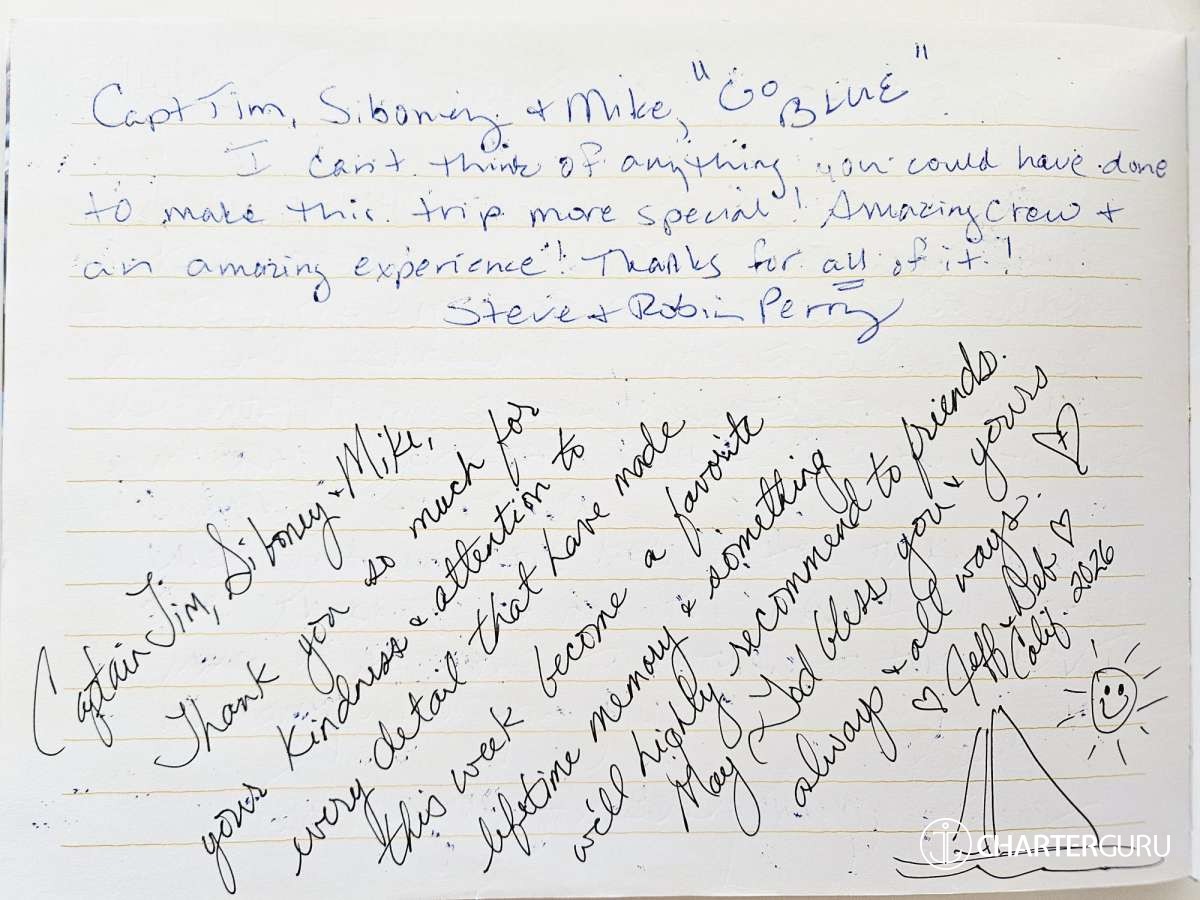 Capt Tim, Siboney + Mike, "GO BLUE"
I can't think of anything you could have done
to make this trip more special! Amazing Crew +
an amazing experience! Thanks for all of it!
Steve + Robin Perry
Captain Jim, Siboney + Mike,
Thank you so much for
your kindness & attention to
every detail that have made
this week become a favorite
lifetime memory & something
will highly recommend to friends.
May God bless you & yours
always & all ways.
♡ Jeff & Deb ♡
Calif. 2026
CHARTERGURU